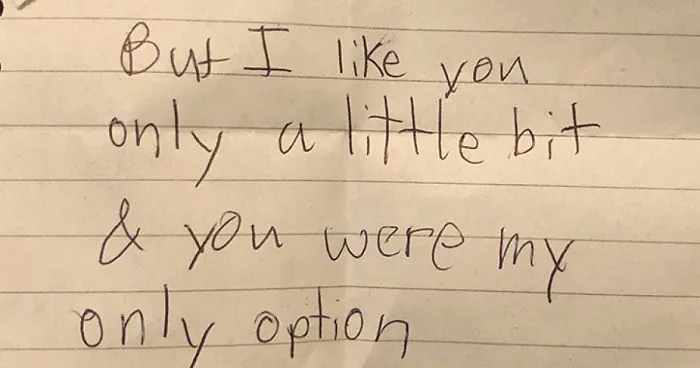 But I like you
only a little bit
& you were my
only option